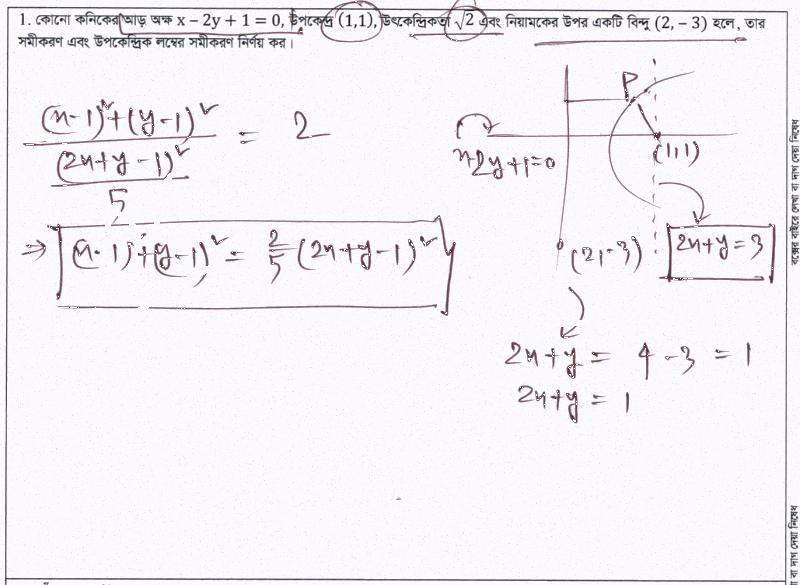 1. কোনো কনিকের আড় অক্ষ x − 2y + 1 = 0, উপকেন্দ্র (1,1), উৎকেন্দ্রিকতা √2 এবং নিয়ামকের উপর একটি বিন্দু (2, − 3) হলে, তার
সমীকরণ এবং উপকেন্দ্রিক লম্বের সমীকরণ নির্ণয় কর।
P
(x-1)²+(y-1)² / ((2x+y-1)²/5) = 2
(1,1)
x-2y+1=0
⇒ (x-1)²+(y-1)² = 2/5 (2x+y-1)²
(2,-3)
2x+y=3
2x+y = 4-3 = 1
2x+y = 1
বক্সের বাইরে লেখা বা দাগ দেয়া নিষেধ
া বা দাগ দেয়া নিষেধ